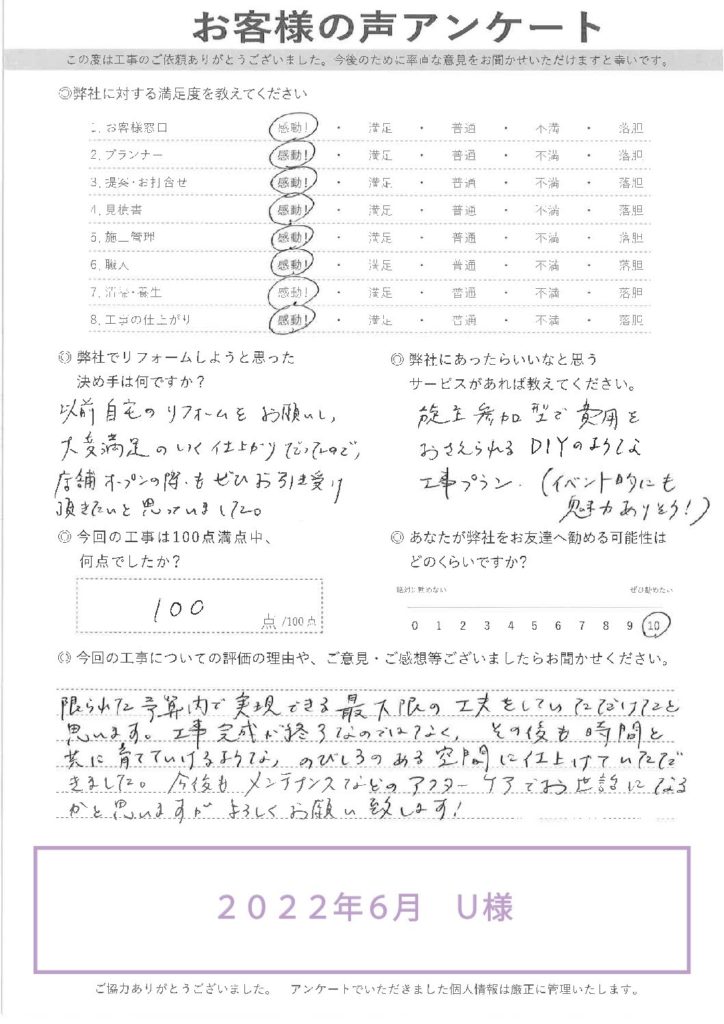 お客様の声アンケート
この度は工事のご依頼ありがとうございました。今後のために率直な意見をお聞かせいただけますと幸いです。
◎弊社に対する満足度を教えてください
1. お客様窓口 感動! ・ 満足 ・ 普通 ・ 不満 ・ 落胆
2. プランナー 感動! ・ 満足 ・ 普通 ・ 不満 ・ 落胆
3. 提案・お打合せ 感動! ・ 満足 ・ 普通 ・ 不満 ・ 落胆
4. 見積書 感動! ・ 満足 ・ 普通 ・ 不満 ・ 落胆
5. 施工管理 感動! ・ 満足 ・ 普通 ・ 不満 ・ 落胆
6. 職人 感動! ・ 満足 ・ 普通 ・ 不満 ・ 落胆
7. 清掃・養生 感動! ・ 満足 ・ 普通 ・ 不満 ・ 落胆
8. 工事の仕上がり 感動! ・ 満足 ・ 普通 ・ 不満 ・ 落胆
◎ 弊社でリフォームしようと思った
決め手は何ですか?
以前自宅のリフォームをお願いし、
大変満足のいく仕上がりだったので、
店舗オープンの際もぜひお引き受け
頂きたいと思っていました。
◎ 弊社にあったらいいなと思う
サービスがあれば教えてください。
施主参加型で費用を
おさえられるDIYのような
工事プラン。(イベント的にも
魅力ありそう!)
◎ 今回の工事は100点満点中、
何点でしたか?
100 点 /100点
◎ あなたが弊社をお友達へ勧める可能性は
どのくらいですか?
絶対に勧めない ぜひ勧めたい
0 1 2 3 4 5 6 7 8 9 10
◎ 今回の工事についての評価の理由や、ご意見・ご感想等ございましたらお聞かせください。
限られた予算内で実現できる最大限の工夫をしていただけたと
思います。工事完成が終了なのではなく、その後も時間と
共に育てていけるような、のびしろのある空間に仕上げていただ
きました。今後もメンテナンスなどのアフターケアでお世話になる
かと思いますがよろしくお願い致します!
2022年6月 U様
ご協力ありがとうございました。 アンケートでいただきました個人情報は厳正に管理いたします。